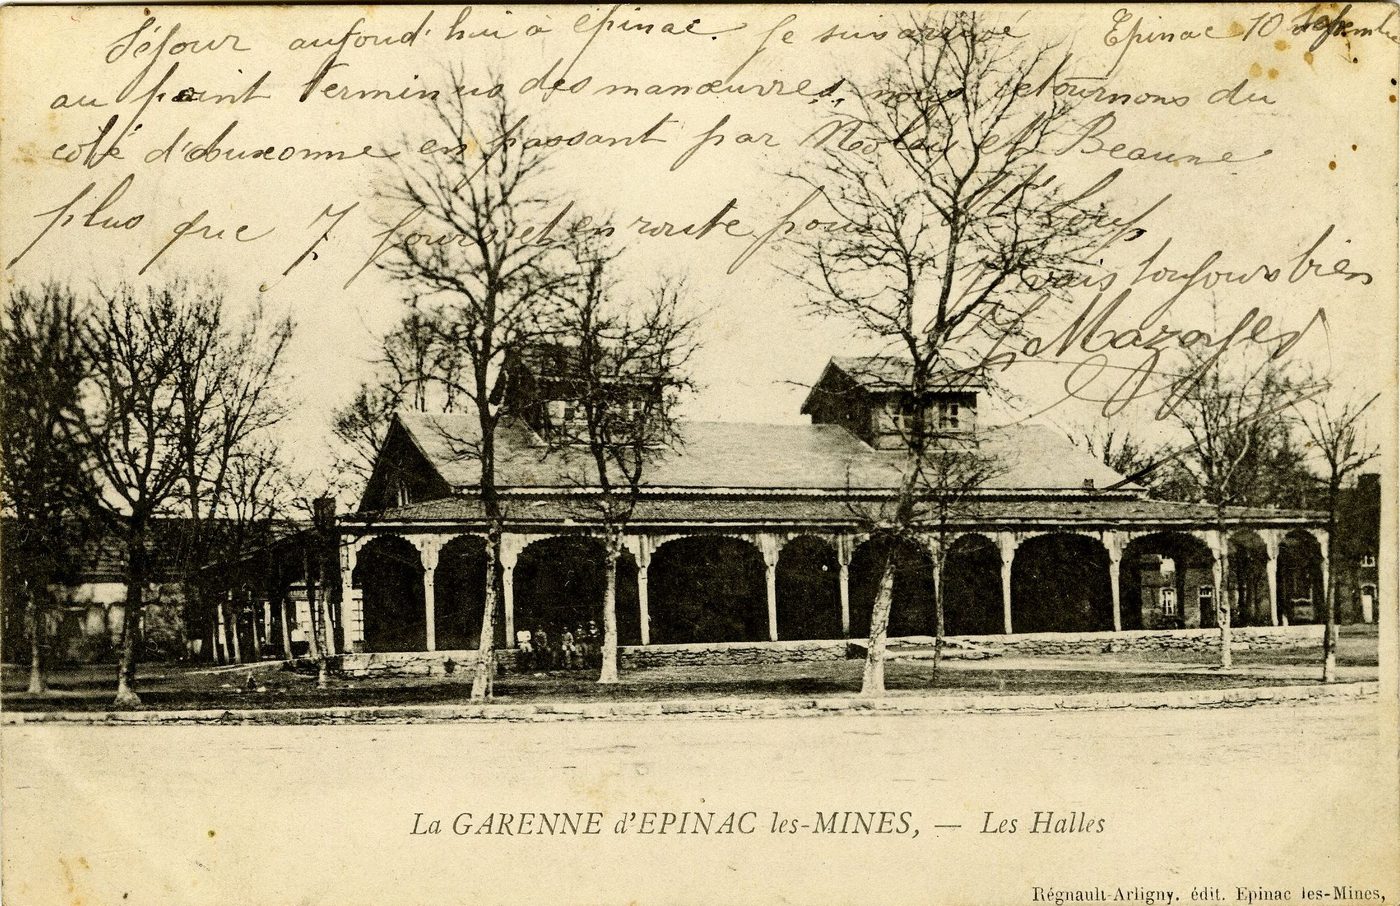 Epinac 10 Septembre
Séjour aujourd'hui à épinac. Je suis arrivé
au point terminus des manœuvres, nous retournons du
coté d'auxonne en passant par Nolay et Beaune
plus que 7 jours et en route pour St Loup
vais toujours bien
Mazoyer
La GARENNE d'EPINAC les-MINES, — Les Halles
Régnault-Arligny. édit. Epinac les-Mines,